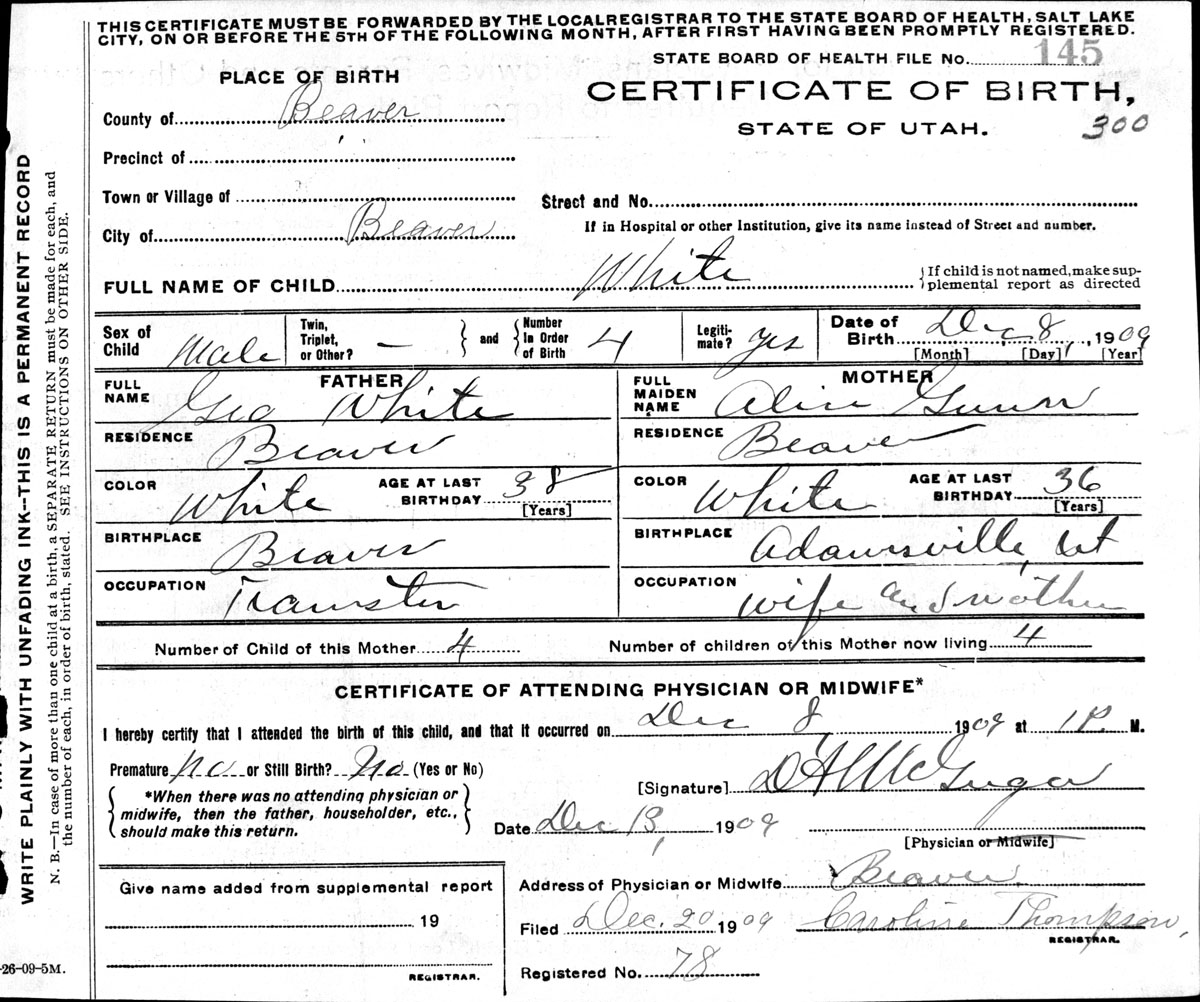 THIS CERTIFICATE MUST BE FORWARDED BY THE LOCAL REGISTRAR TO THE STATE BOARD OF HEALTH, SALT LAKE
CITY, ON OR BEFORE THE 5TH OF THE FOLLOWING MONTH, AFTER FIRST HAVING BEEN PROMPTLY REGISTERED.
STATE BOARD OF HEALTH FILE No. 145
PLACE OF BIRTH
CERTIFICATE OF BIRTH,
County of Beaver
STATE OF UTAH. 300
Precinct of
Town or Village of
Street and No.
City of Beaver
If in Hospital or other Institution, give its name instead of Street and number.
FULL NAME OF CHILD White
If child is not named, make sup-
plemental report as directed
Sex of Child Male
Twin, Triplet, or Other? —
and Number In Order of Birth 4
Legiti-mate? yes
Date of Birth Dec 8, 1909
[Month] [Day] [Year]
FATHER
FULL NAME Geo White
MOTHER
FULL MAIDEN NAME Alice Gunn
RESIDENCE Beaver
RESIDENCE Beaver
COLOR White AGE AT LAST BIRTHDAY 38 [Years]
COLOR White AGE AT LAST BIRTHDAY 36 [Years]
BIRTHPLACE Beaver
BIRTHPLACE Adamsville, Ut
OCCUPATION Teamster
OCCUPATION wife and mother
Number of Child of this Mother 4
Number of children of this Mother now living 4
CERTIFICATE OF ATTENDING PHYSICIAN OR MIDWIFE*
I hereby certify that I attended the birth of this child, and that it occurred on Dec 8, 1909 at 1 P. M.
Premature no or Still Birth? No (Yes or No)
*When there was no attending physician or
midwife, then the father, householder, etc.,
should make this return.
[Signature]
Date Dec 13, 1909
[Physician or Midwife]
Give name added from supplemental report
19
REGISTRAR.
Address of Physician or Midwife Beaver
Filed Dec. 20 1909 Caroline Thompson,
REGISTRAR.
Registered No. 78
WRITE PLAINLY WITH UNFADING INK--THIS IS A PERMANENT RECORD
N. B.—In case of more than one child at a birth, a SEPARATE RETURN must be made for each, and
the number of each, in order of birth, stated. SEE INSTRUCTIONS ON OTHER SIDE.
-26-09-5M.